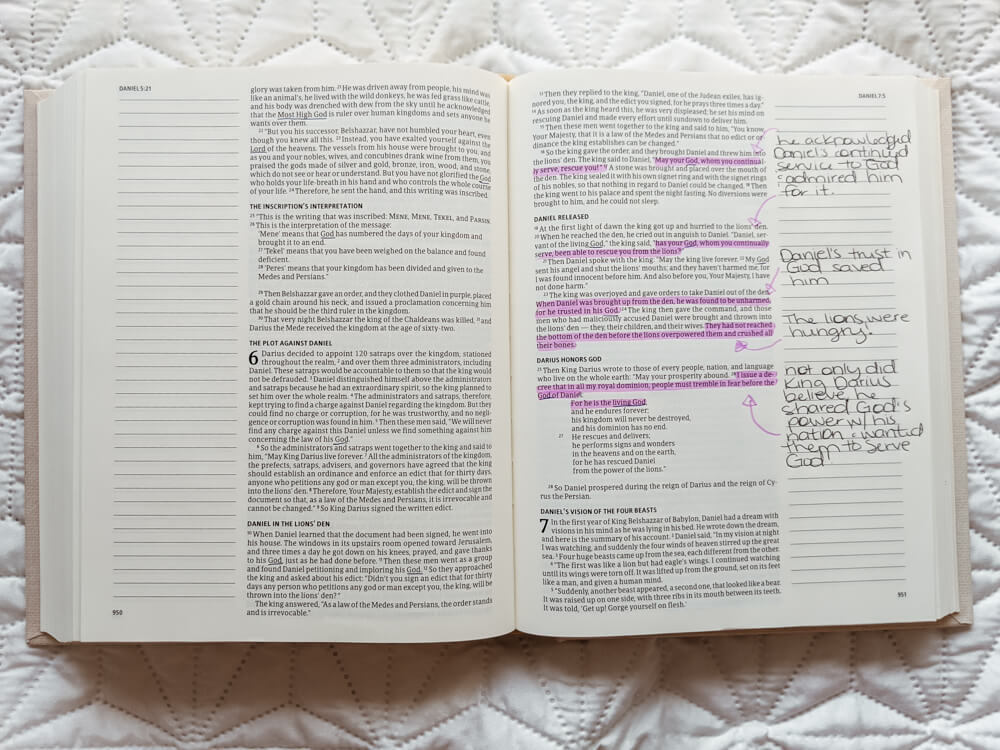 DANIEL 5:21
glory was taken from him. 21 He was driven away from people, his mind was
like an animal's, he lived with the wild donkeys, he was fed grass like cattle,
and his body was drenched with dew from the sky until he acknowledged
that the Most High God is ruler over human kingdoms and sets anyone he
wants over them.
22 "But you his successor, Belshazzar, have not humbled your heart, even
though you knew all this. 23 Instead, you have exalted yourself against the
Lord of the heavens. The vessels from his house were brought to you, and
as you and your nobles, wives, and concubines drank wine from them, you
praised the gods made of silver and gold, bronze, iron, wood, and stone,
which do not see or hear or understand. But you have not glorified the God
who holds your life-breath in his hand and who controls the whole course
of your life. 24 Therefore, he sent the hand, and this writing was inscribed.
THE INSCRIPTION'S INTERPRETATION
25 "This is the writing that was inscribed: MENE, MENE, TEKEL, and PARSIN.
26 This is the interpretation of the message:
'Mene' means that God has numbered the days of your kingdom and
brought it to an end.
27 'Tekel' means that you have been weighed on the balance and found
deficient.
28 'Peres' means that your kingdom has been divided and given to the
Medes and Persians."
29 Then Belshazzar gave an order, and they clothed Daniel in purple, placed
a gold chain around his neck, and issued a proclamation concerning him
that he should be the third ruler in the kingdom.
30 That very night Belshazzar the king of the Chaldeans was killed, 31 and
Darius the Mede received the kingdom at the age of sixty-two.
THE PLOT AGAINST DANIEL
6 Darius decided to appoint 120 satraps over the kingdom, stationed
throughout the realm, 2 and over them three administrators, including
Daniel. These satraps would be accountable to them so that the king would
not be defrauded. 3 Daniel distinguished himself above the administrators
and satraps because he had an extraordinary spirit, so the king planned to
set him over the whole realm. 4 The administrators and satraps, therefore,
kept trying to find a charge against Daniel regarding the kingdom. But they
could find no charge or corruption, for he was trustworthy, and no negli-
gence or corruption was found in him. 5 Then these men said, "We will never
find any charge against this Daniel unless we find something against him
concerning the law of his God."
6 So the administrators and satraps went together to the king and said to
him, "May King Darius live forever. 7 All the administrators of the kingdom,
the prefects, satraps, advisers, and governors have agreed that the king
should establish an ordinance and enforce an edict that for thirty days,
anyone who petitions any god or man except you, the king, will be thrown
into the lions' den. 8 Therefore, Your Majesty, establish the edict and sign the
document so that, as a law of the Medes and Persians, it is irrevocable and
cannot be changed." 9 So King Darius signed the written edict.
DANIEL IN THE LIONS' DEN
10 When Daniel learned that the document had been signed, he went into
his house. The windows in its upstairs room opened toward Jerusalem,
and three times a day he got down on his knees, prayed, and gave thanks
to his God, just as he had done before. 11 Then these men went as a group
and found Daniel petitioning and imploring his God. 12 So they approached
the king and asked about his edict: "Didn't you sign an edict that for thirty
days any person who petitions any god or man except you, the king, will be
thrown into the lions' den?"
The king answered, "As a law of the Medes and Persians, the order stands
and is irrevocable."
950
DANIEL 7:5
13 Then they replied to the king, "Daniel, one of the Judean exiles, has ig-
nored you, the king, and the edict you signed, for he prays three times a day."
14 As soon as the king heard this, he was very displeased; he set his mind on
rescuing Daniel and made every effort until sundown to deliver him.
15 Then these men went together to the king and said to him, "You know,
Your Majesty, that it is a law of the Medes and Persians that no edict or or-
dinance the king establishes can be changed."
16 So the king gave the order, and they brought Daniel and threw him into
the lions' den. The king said to Daniel, "May your God, whom you continual-
ly serve, rescue you!" 17 A stone was brought and placed over the mouth of
the den. The king sealed it with his own signet ring and with the signet rings
of his nobles, so that nothing in regard to Daniel could be changed. 18 Then
the king went to his palace and spent the night fasting. No diversions were
brought to him, and he could not sleep.
DANIEL RELEASED
19 At the first light of dawn the king got up and hurried to the lions' den.
20 When he reached the den, he cried out in anguish to Daniel. "Daniel, ser-
vant of the living God," the king said, "has your God, whom you continually
serve, been able to rescue you from the lions?"
21 Then Daniel spoke with the king: "May the king live forever. 22 My God
sent his angel and shut the lions' mouths; and they haven't harmed me, for
I was found innocent before him. And also before you, Your Majesty, I have
not done harm."
23 The king was overjoyed and gave orders to take Daniel out of the den.
When Daniel was brought up from the den, he was found to be unharmed,
for he trusted in his God. 24 The king then gave the command, and those
men who had maliciously accused Daniel were brought and thrown into
the lions' den — they, their children, and their wives. They had not reached
the bottom of the den before the lions overpowered them and crushed all
their bones.
DARIUS HONORS GOD
25 Then King Darius wrote to those of every people, nation, and language
who live on the whole earth: "May your prosperity abound. 26 I issue a de-
cree that in all my royal dominion, people must tremble in fear before the
God of Daniel:
For he is the living God,
and he endures forever;
his kingdom will never be destroyed,
and his dominion has no end.
27 He rescues and delivers;
he performs signs and wonders
in the heavens and on the earth,
for he has rescued Daniel
from the power of the lions."
28 So Daniel prospered during the reign of Darius and the reign of Cy-
rus the Persian.
DANIEL'S VISION OF THE FOUR BEASTS
7 In the first year of King Belshazzar of Babylon, Daniel had a dream with
visions in his mind as he was lying in his bed. He wrote down the dream,
and here is the summary of his account. 2 Daniel said, "In my vision at night
I was watching, and suddenly the four winds of heaven stirred up the great
sea. 3 Four huge beasts came up from the sea, each different from the other.
4 "The first was like a lion but had eagle's wings. I continued watching
until its wings were torn off. It was lifted up from the ground, set on its feet
like a man, and given a human mind.
5 "Suddenly, another beast appeared, a second one, that looked like a bear.
It was raised up on one side, with three ribs in its mouth between its teeth.
It was told, 'Get up! Gorge yourself on flesh.'
he acknowledged
Daniel's continued
service to God
& admired him
for it.
Daniel's trust in
God saved
him
The lions were
hungry!
not only did
King Darius
believe, he
shared God's
power w/ his
nation & wanted
them to serve
God!
951